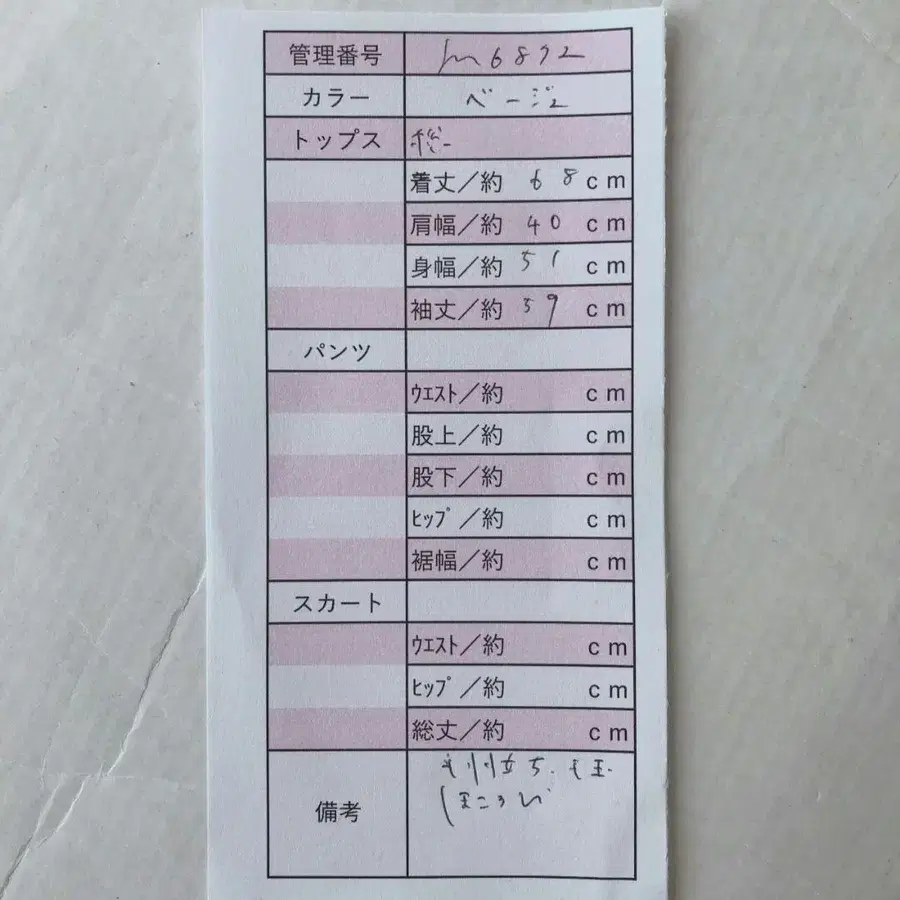 管理番号 m6892
カラー ベージュ
トップス 総
着丈／約 68 cm
肩幅／約 40 cm
身幅／約 51 cm
袖丈／約 59 cm
パンツ
ｳｴｽﾄ／約 cm
股上／約 cm
股下／約 cm
ﾋｯﾌﾟ／約 cm
裾幅／約 cm
スカート
ｳｴｽﾄ／約 cm
ﾋｯﾌﾟ／約 cm
総丈／約 cm
備考 毛羽立ち、毛玉
ほころび